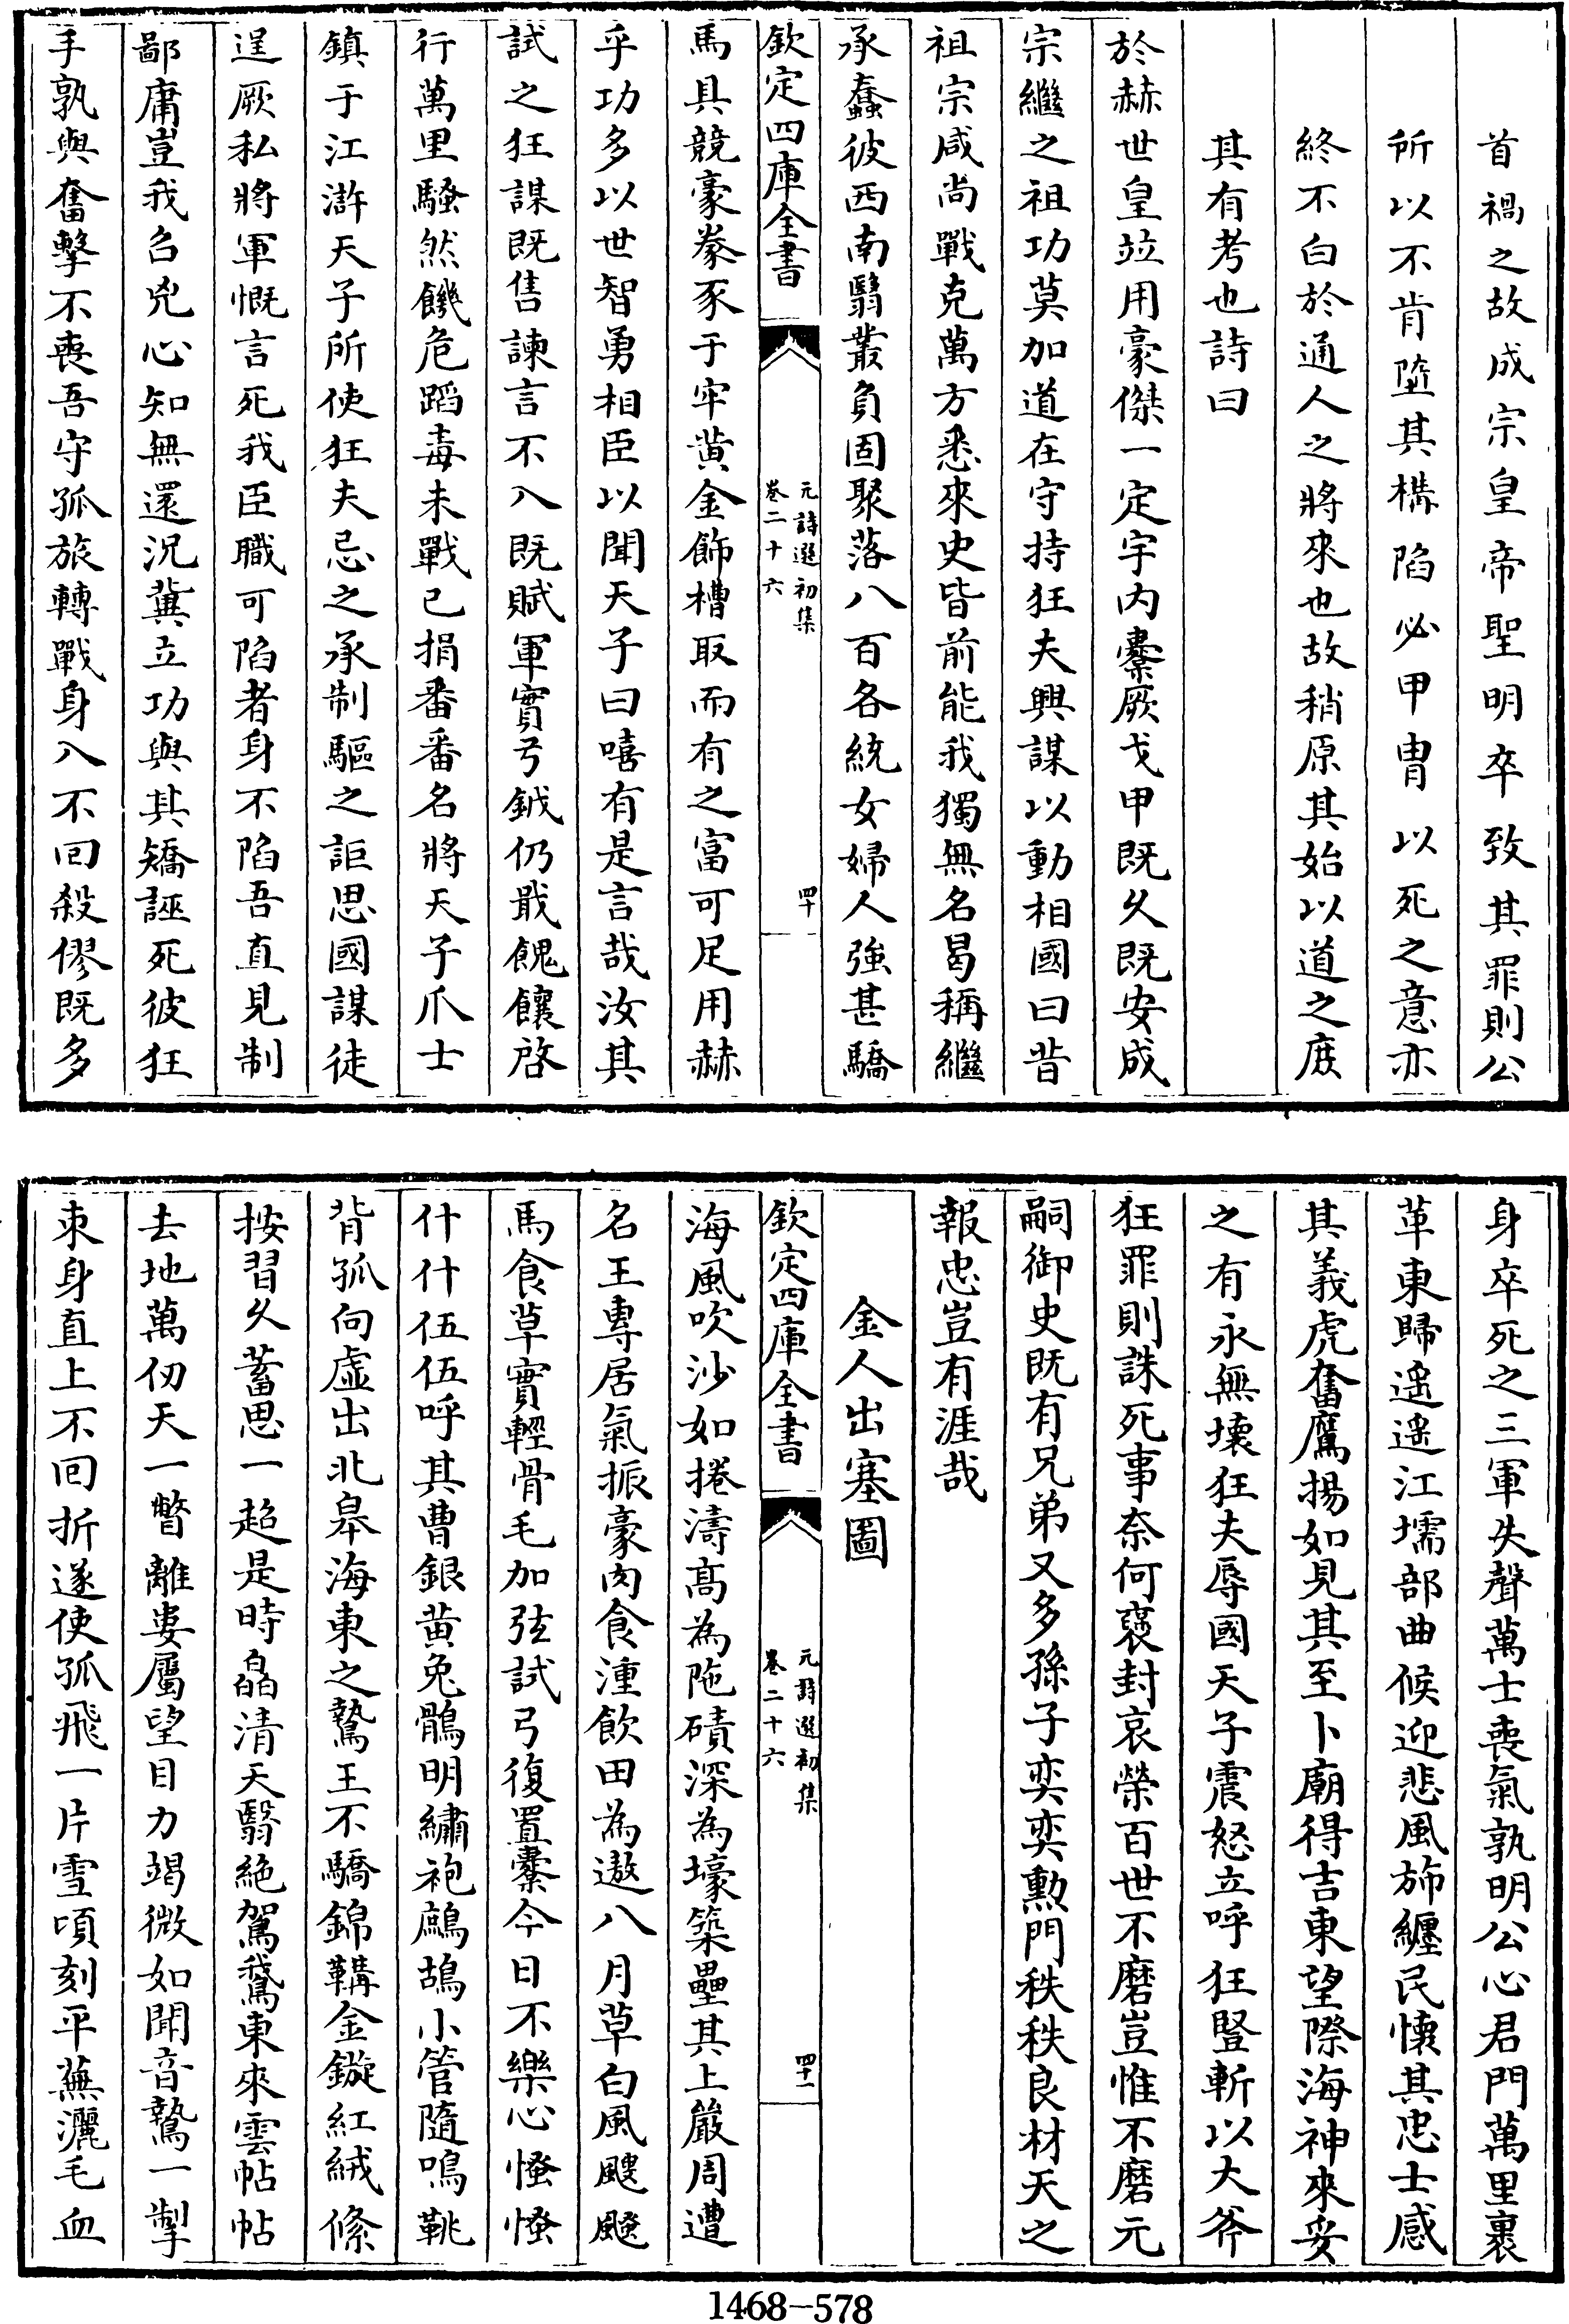 首禍之故成宗皇帝聖明卒致其罪則公
所以不肯墮其構陷必甲胄以死之意亦
終不白於通人之將來也故稍原其始以道之庶
其有考也詩曰
於赫世皇竝用豪傑一定宇内櫜厥戈甲既久既安成
宗繼之祖功莫加道在守持狂夫興謀以動相國曰昔
祖宗咸尚戰克萬方悉來史皆前能我獨無名曷稱繼
承蠢彼西南翳叢負固聚落八百各統女婦人強甚驕
欽定四庫全書
元詩選初集
卷二十六
四十
馬具競豪豢豕于牢黄金飾槽取而有之富可足用赫
乎功多以世智勇相臣以聞天子曰嘻有是言哉汝其
試之狂謀既售諫言不入既賦軍實弓鉞仍戢餽饟啓
行萬里騷然饑危蹈毒未戰已捐番番名將天子爪士
鎮于江滸天子所使狂夫忌之承制驅之詎思國謀徒
逞厥私將軍慨言死我臣職可陷者身不陷吾直見制
鄙庸豈我召兇心知無還況冀立功與其矯誣死彼狂
手孰與奮擊不喪吾守孤旅轉戰身入不回殺僇既多
身卒死之三軍失聲萬士喪氣孰明公心君門萬里裹
革東歸遥遥江壖部曲候迎悲風斾纒民懐其忠士感
其義虎奮鷹揚如見其至卜廟得吉東望際海神來妥
之有永無壊狂夫辱國天子震怒立呼狂豎斬以大斧
狂罪則誅死事奈何襃封哀榮百世不磨豈惟不磨元
嗣御史既有兄弟又多孫子奕奕勲門秩秩良材天之
報忠豈有涯哉
金人出塞圖
欽定四庫全書
元詩選初集
卷二十六
四十一
海風吹沙如捲濤髙為陁磧深為壕築壘其上嚴周遭
名王專居氣振豪肉食湩飲田為遨八月草白風颼飉
馬食草實輕骨毛加弦試弓復置櫜今日不樂心慅慅
什什伍伍呼其曹銀黄兔鶻明繡袍鷓鴣小管隨鳴鞉
背孤向虛出北皋海東之鷙王不驕錦鞲金鏇紅絨絛
按習久蓄思一超是時皛清天翳絶駕鵞東來雲帖帖
去地萬仞天一瞥離婁屬望目力竭微如聞音鷙一掣
束身直上不回折遂使孤飛一片雪頃刻平蕪灑毛血
1468—578